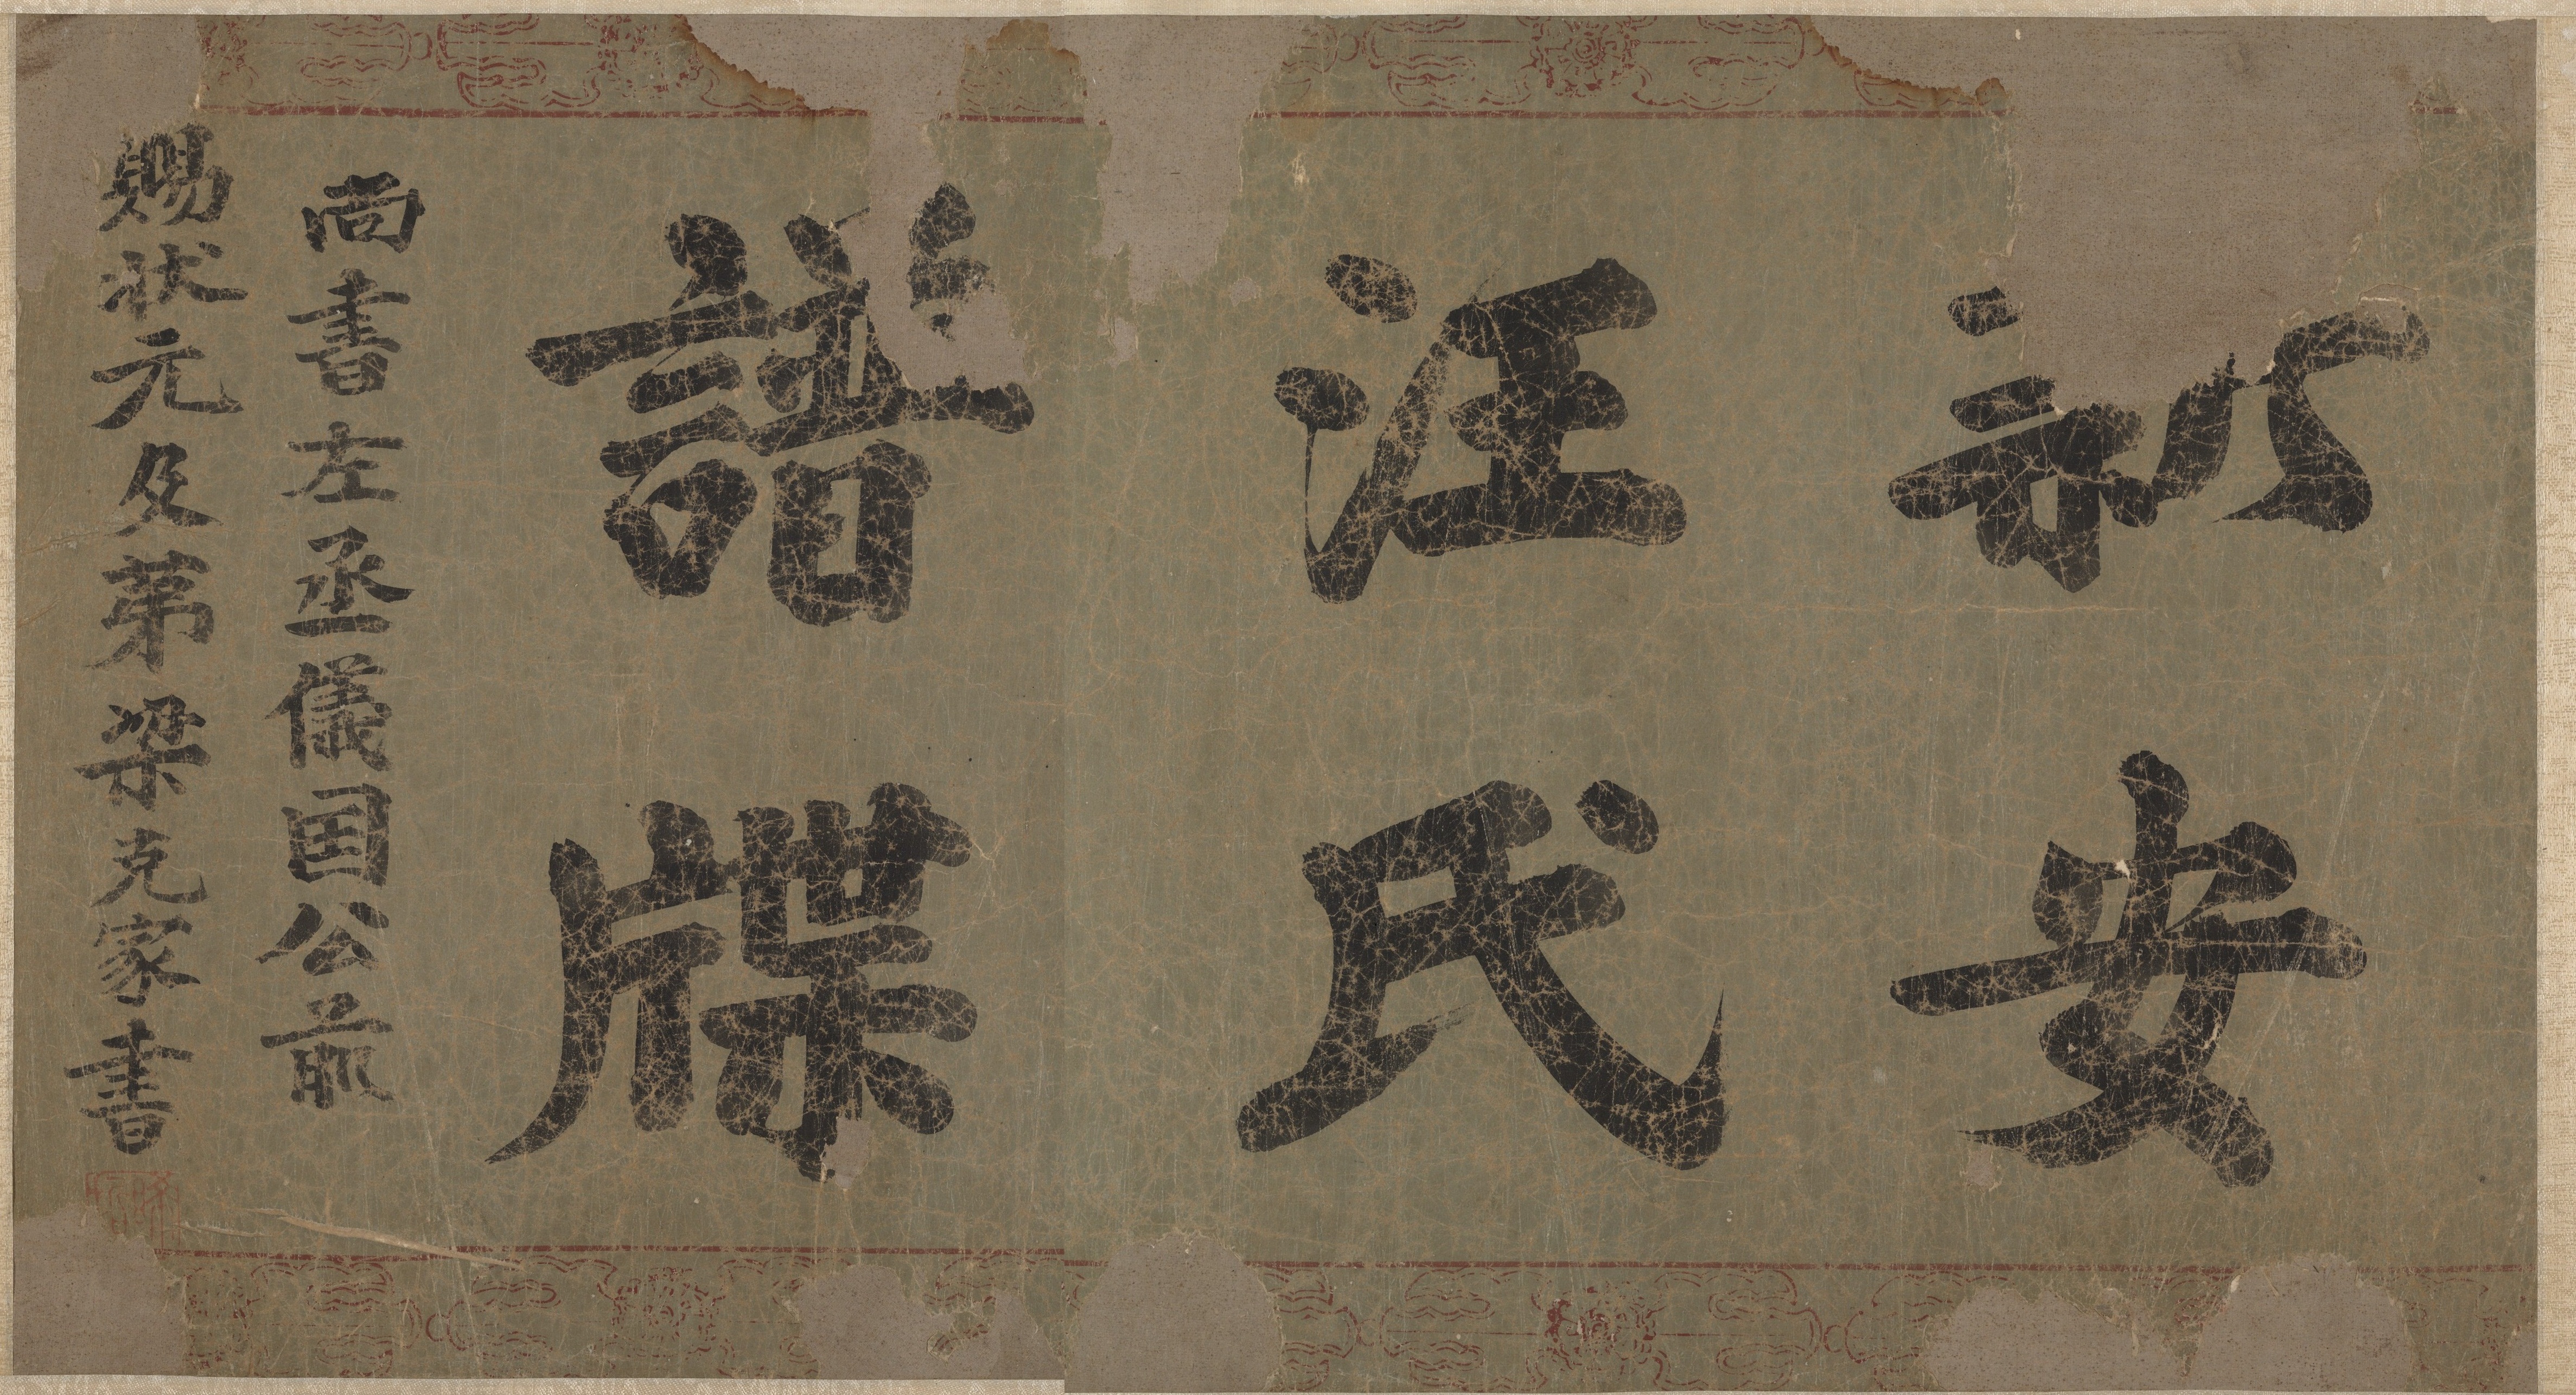 新安
汪氏
譜牒
尚書左丞儀囯公前
賜状元及苐梁克家書